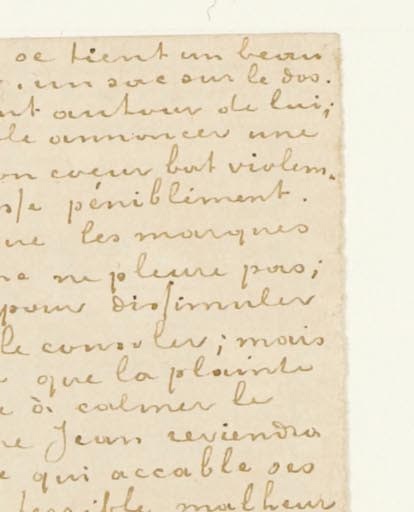 se tient un beau
un sac sur le dos.
nt autour de lui;
le annoncer une
on cœur bat violem-
sse péniblément.
ue les marques
ne ne pleure pas;
pour dissimuler
le consoler; mais
que la plainte
e à calmer le
ne Jean reviendra
e qui accable ses
terrible malheur